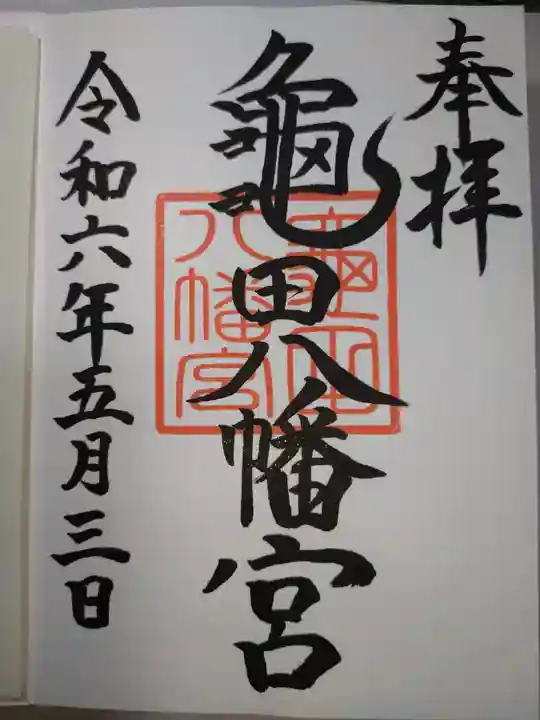 奉拝
龜田八幡宮
龜田
八幡宮
令和六年五月三日